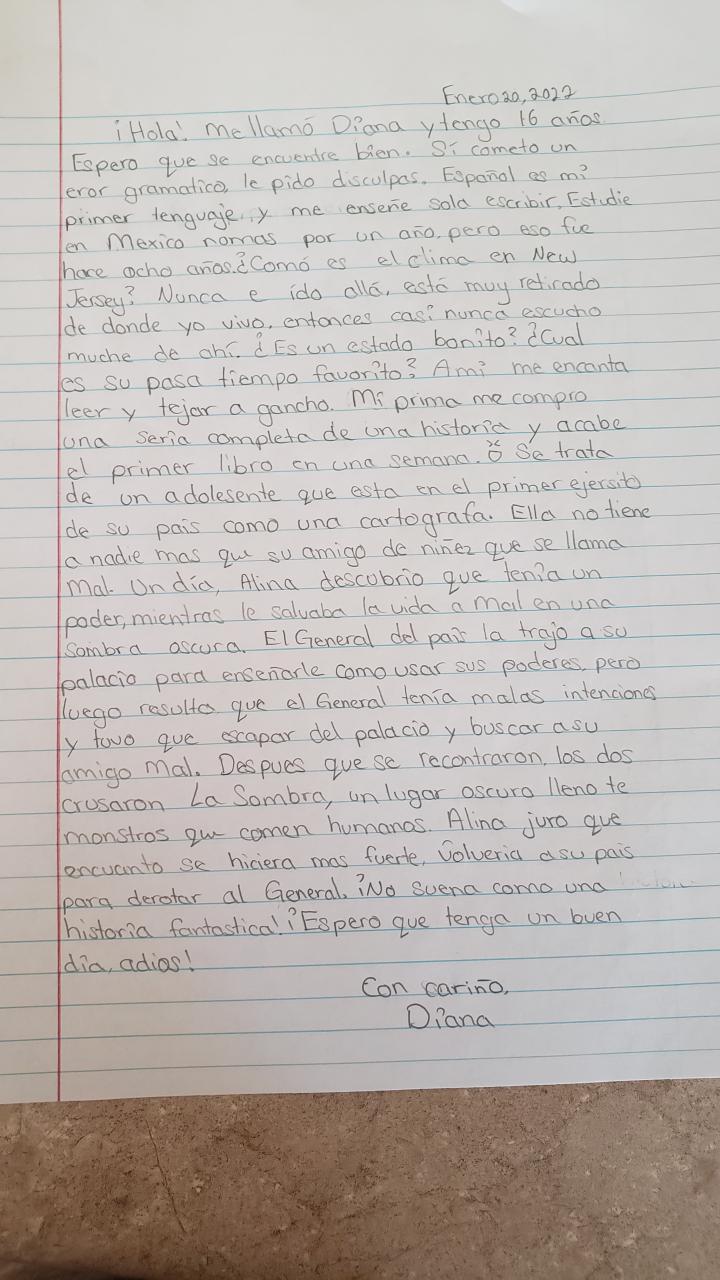 Enero 20, 2022
¡Hola! me llamó Diana y tengo 16 años.
Espero que se encuentre bien. Sí cometo un
eror gramatico, le pido disculpas. Español es mi
primer lenguaje, y me enseñe sola escribir. Estudie
en Mexico nomas por un año, pero eso fue
hace ocho años. ¿Comó es el clima en New
Jersey? Nunca e ído allá, está muy retirado
de donde yo vivo, entonces casi nunca escucho
muche de ahí. ¿Es un estado bonito? ¿Cual
es su pasa tiempo favorito? Ami me encanta
leer y tejar a gancho. Mi prima me compro
una seria completa de una historia y acabe
el primer libro en una semana. Se trata
de un adolesente que esta en el primer ejersito
de su pais como una cartografa. Ella no tiene
a nadie mas que su amigo de niñez que se llama
Mal. Un día, Alina descubrio que tenía un
poder, mientras le salvaba la vida a Mal en una
sombra oscura. El General del pais la trajo a su
palacio para enseñarle como usar sus poderes, pero
luego resulta que el General tenía malas intenciones
y tuvo que escapar del palacio y buscar a su
amigo Mal. Despues que se recontraron, los dos
crusaron La Sombra, un lugar oscuro lleno te
monstros que comen humanos. Alina juro que
encuanto se hiciera mas fuerte, volveria a su pais
para derotar al General. ¡No suena como una
historia fantastica! ¡Espero que tenga un buen
día, adios!
Con cariño,
Diana